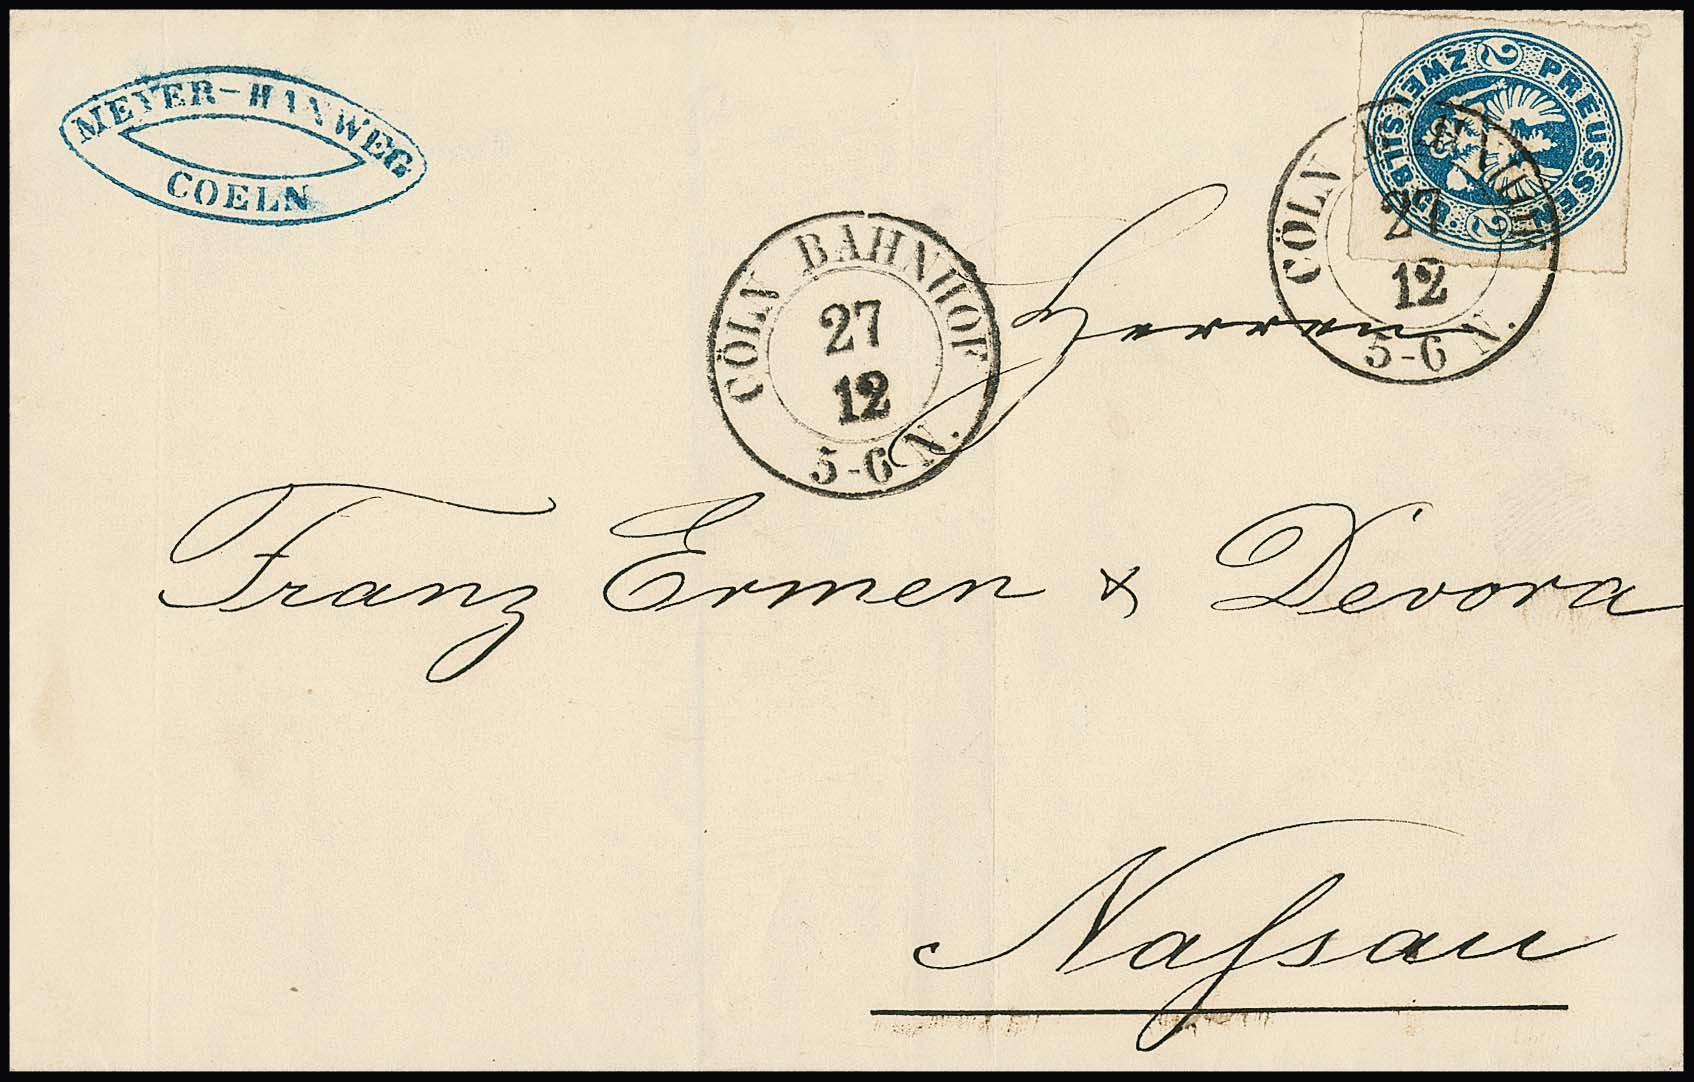 MEYER-HANWEG.
COELN
PREUSSEN
2
ZWEI SILB. GR.
2
CÖLN BAHNHOF
27
12
5-6 N.
CÖLN BAHNHOF
27
12
5-6 N.
Herren
Franz Ermen & Devora
Naſsau